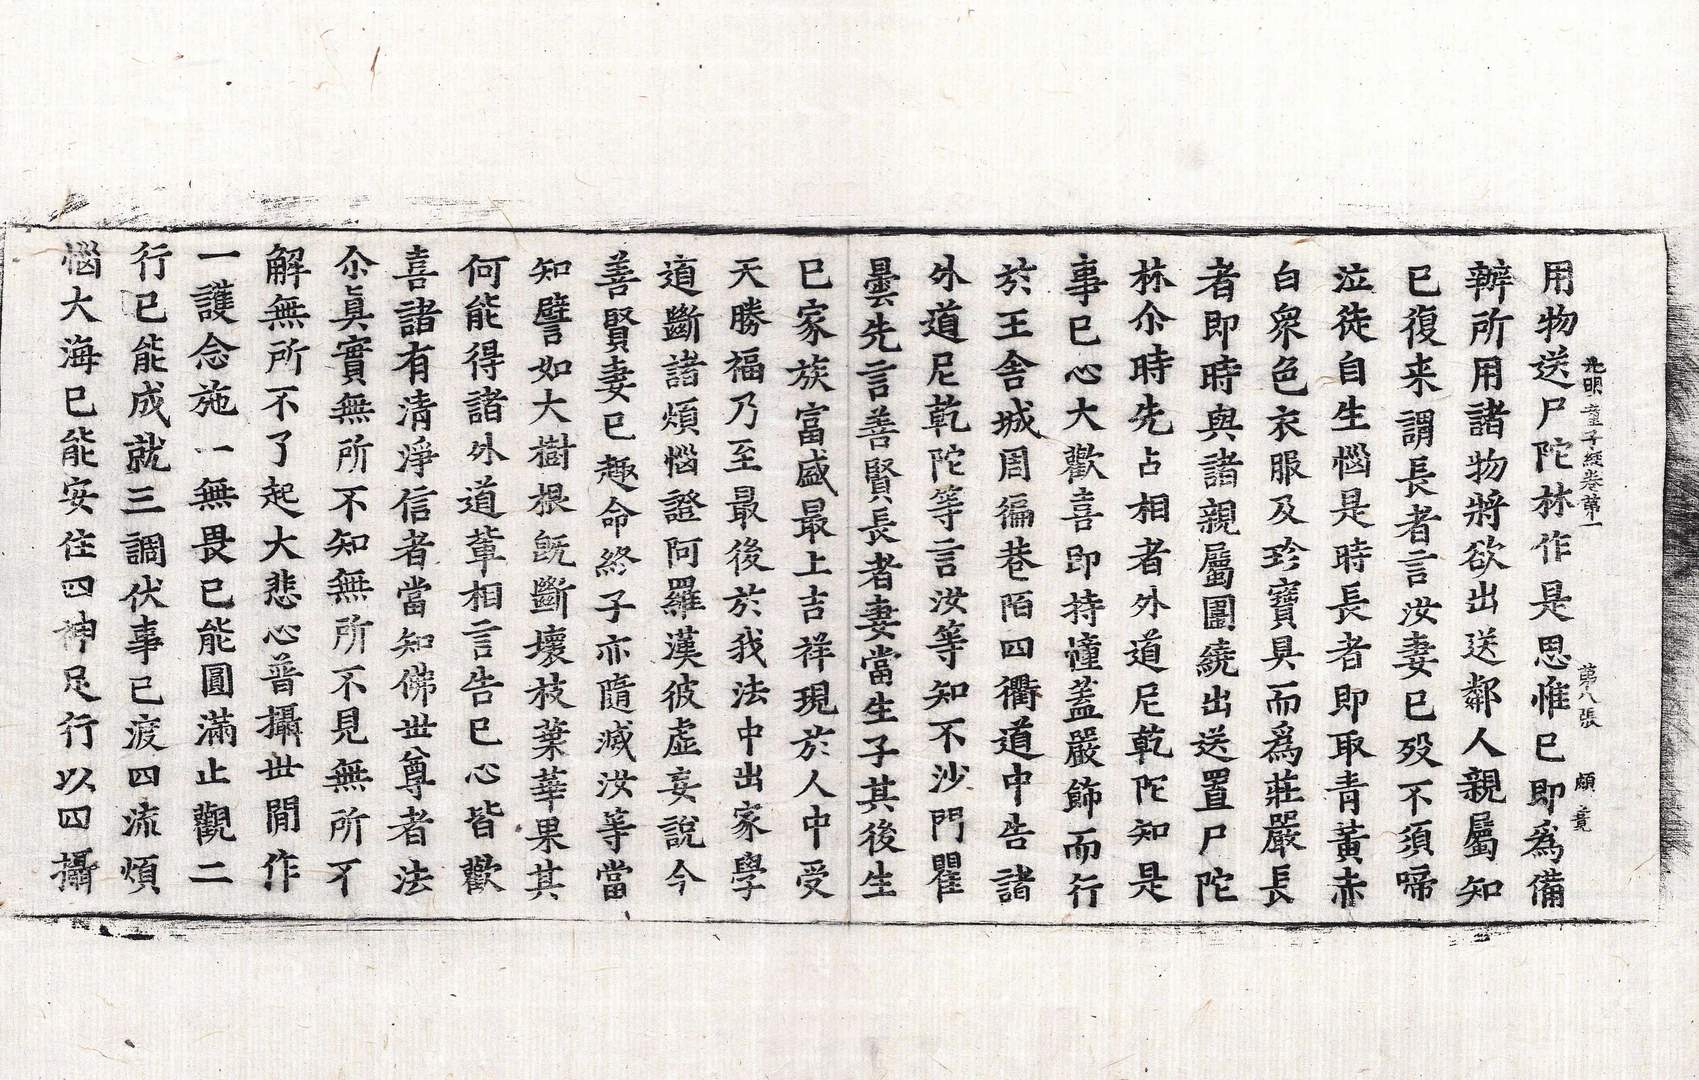 光明童子經卷第一 第八張 願 竟
用物送尸陀林作是思惟已即爲備
辦所用諸物將欲出送鄰人親屬知
已復来謂長者言汝妻已殁不須啼
泣徒自生惱是時長者即取青黃赤
白衆色衣服及珍寶具而爲莊嚴長
者即時與諸親屬圍繞出送置尸陀
林尒時先占相者外道尼乾陀知是
事已心大歡喜即持幢蓋嚴飾而行
於王舍城周徧巷陌四衢道中告諸
外道尼乾陀等言汝等知不沙門瞿
曇先言善賢長者妻當生子其後生
已家族富盛最上吉祥現於人中受
天勝福乃至最後於我法中出家學
道斷諸煩惱證阿羅漢彼虛妄說今
善賢妻已趣命終子亦隨滅汝等當
知譬如大樹根旣斷壞枝葉華果其
何能得諸外道輩相言告已心皆歡
喜諸有清淨信者當知佛世尊者法
尒眞實無所不知無所不見無所不
解無所不了起大悲心普攝世閒作
一護念施一無畏已能圓滿止觀二
行已能成就三調伏事已渡四流煩
惱大海已能安住四神足行以四攝